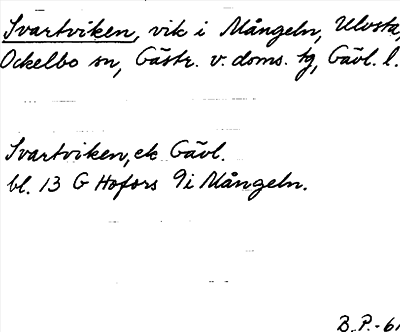 Svartviken, vik i Mångeln, Ulvsta,
Ockelbo sn, Gästr. v. doms. tg, Gävl. l.
Svartviken, ek Gävl.
bl. 13 G Hofors 9i Mångeln.
B.P.-61